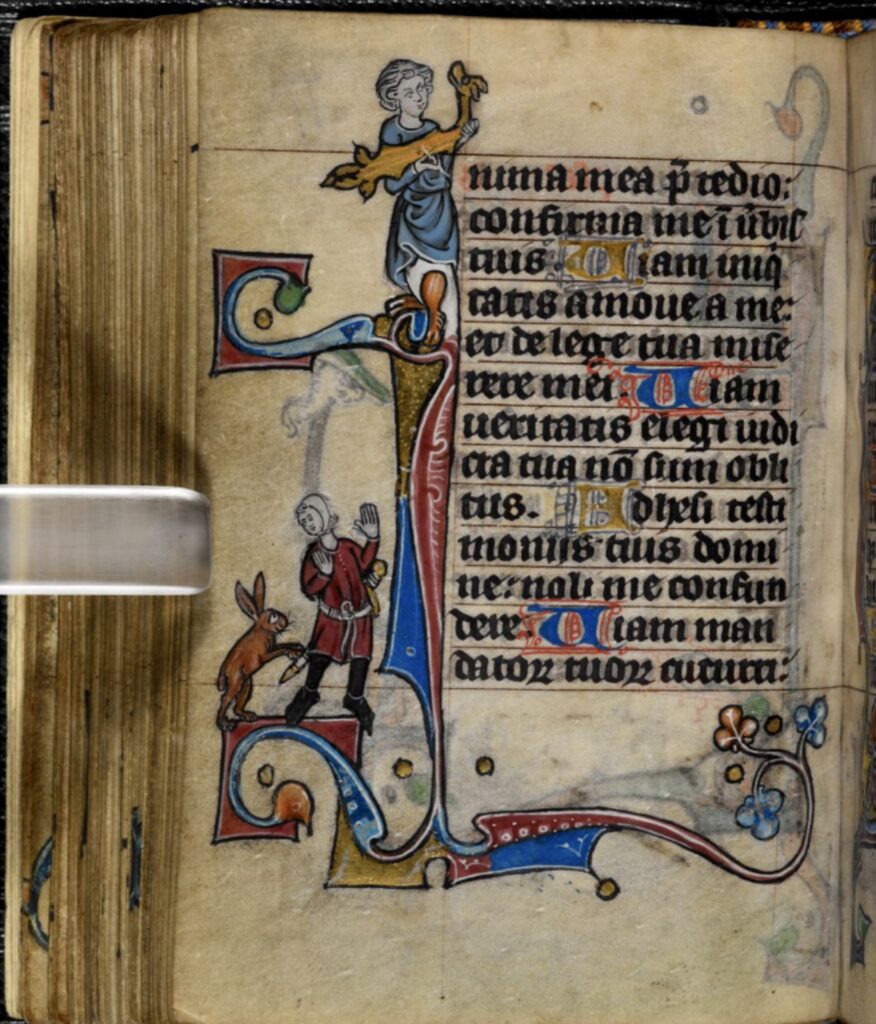 nima mea p̄ tedio:
confirma me ī ūbis
tuis. Uiam iniq̇
tatis amoue a me:
et de lege tua mise
rere mei. Uiam
ueritatis elegi iudi
cia tua nō sum obli
tus. Adhesi testi
moniis tuis domi
ne: noli me confun
dere. Uiam man
datoꝝ tuoꝝ cucurri: